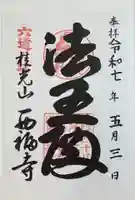 奉拝 令和七年 五月三日
法王尊
六道 桂光山 西福寺